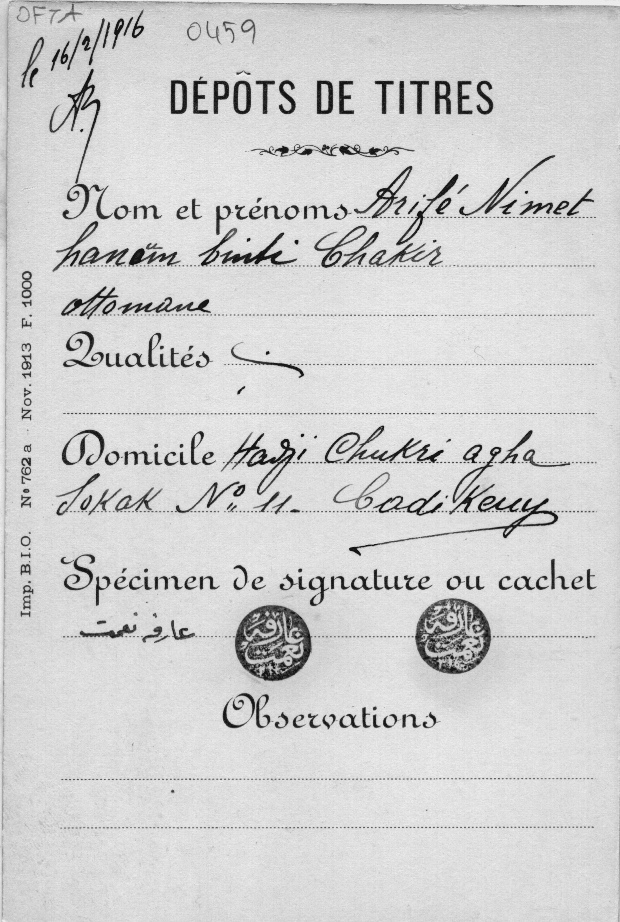 OFTA
le 16/2/1916
0459
DÉPÔTS DE TITRES
Nom et prénoms Arifé Nimet
hanoum binti Chakir
ottomane
Qualités
Domicile Hadji Chukri agha
Sokak No 11. Cadi Keuy
Imp. B.I.O. No 762 a Nov. 1913 F. 1000
Spécimen de signature ou cachet
عارفه نعمت
عارفه نعمت
عارفه نعمت
Observations